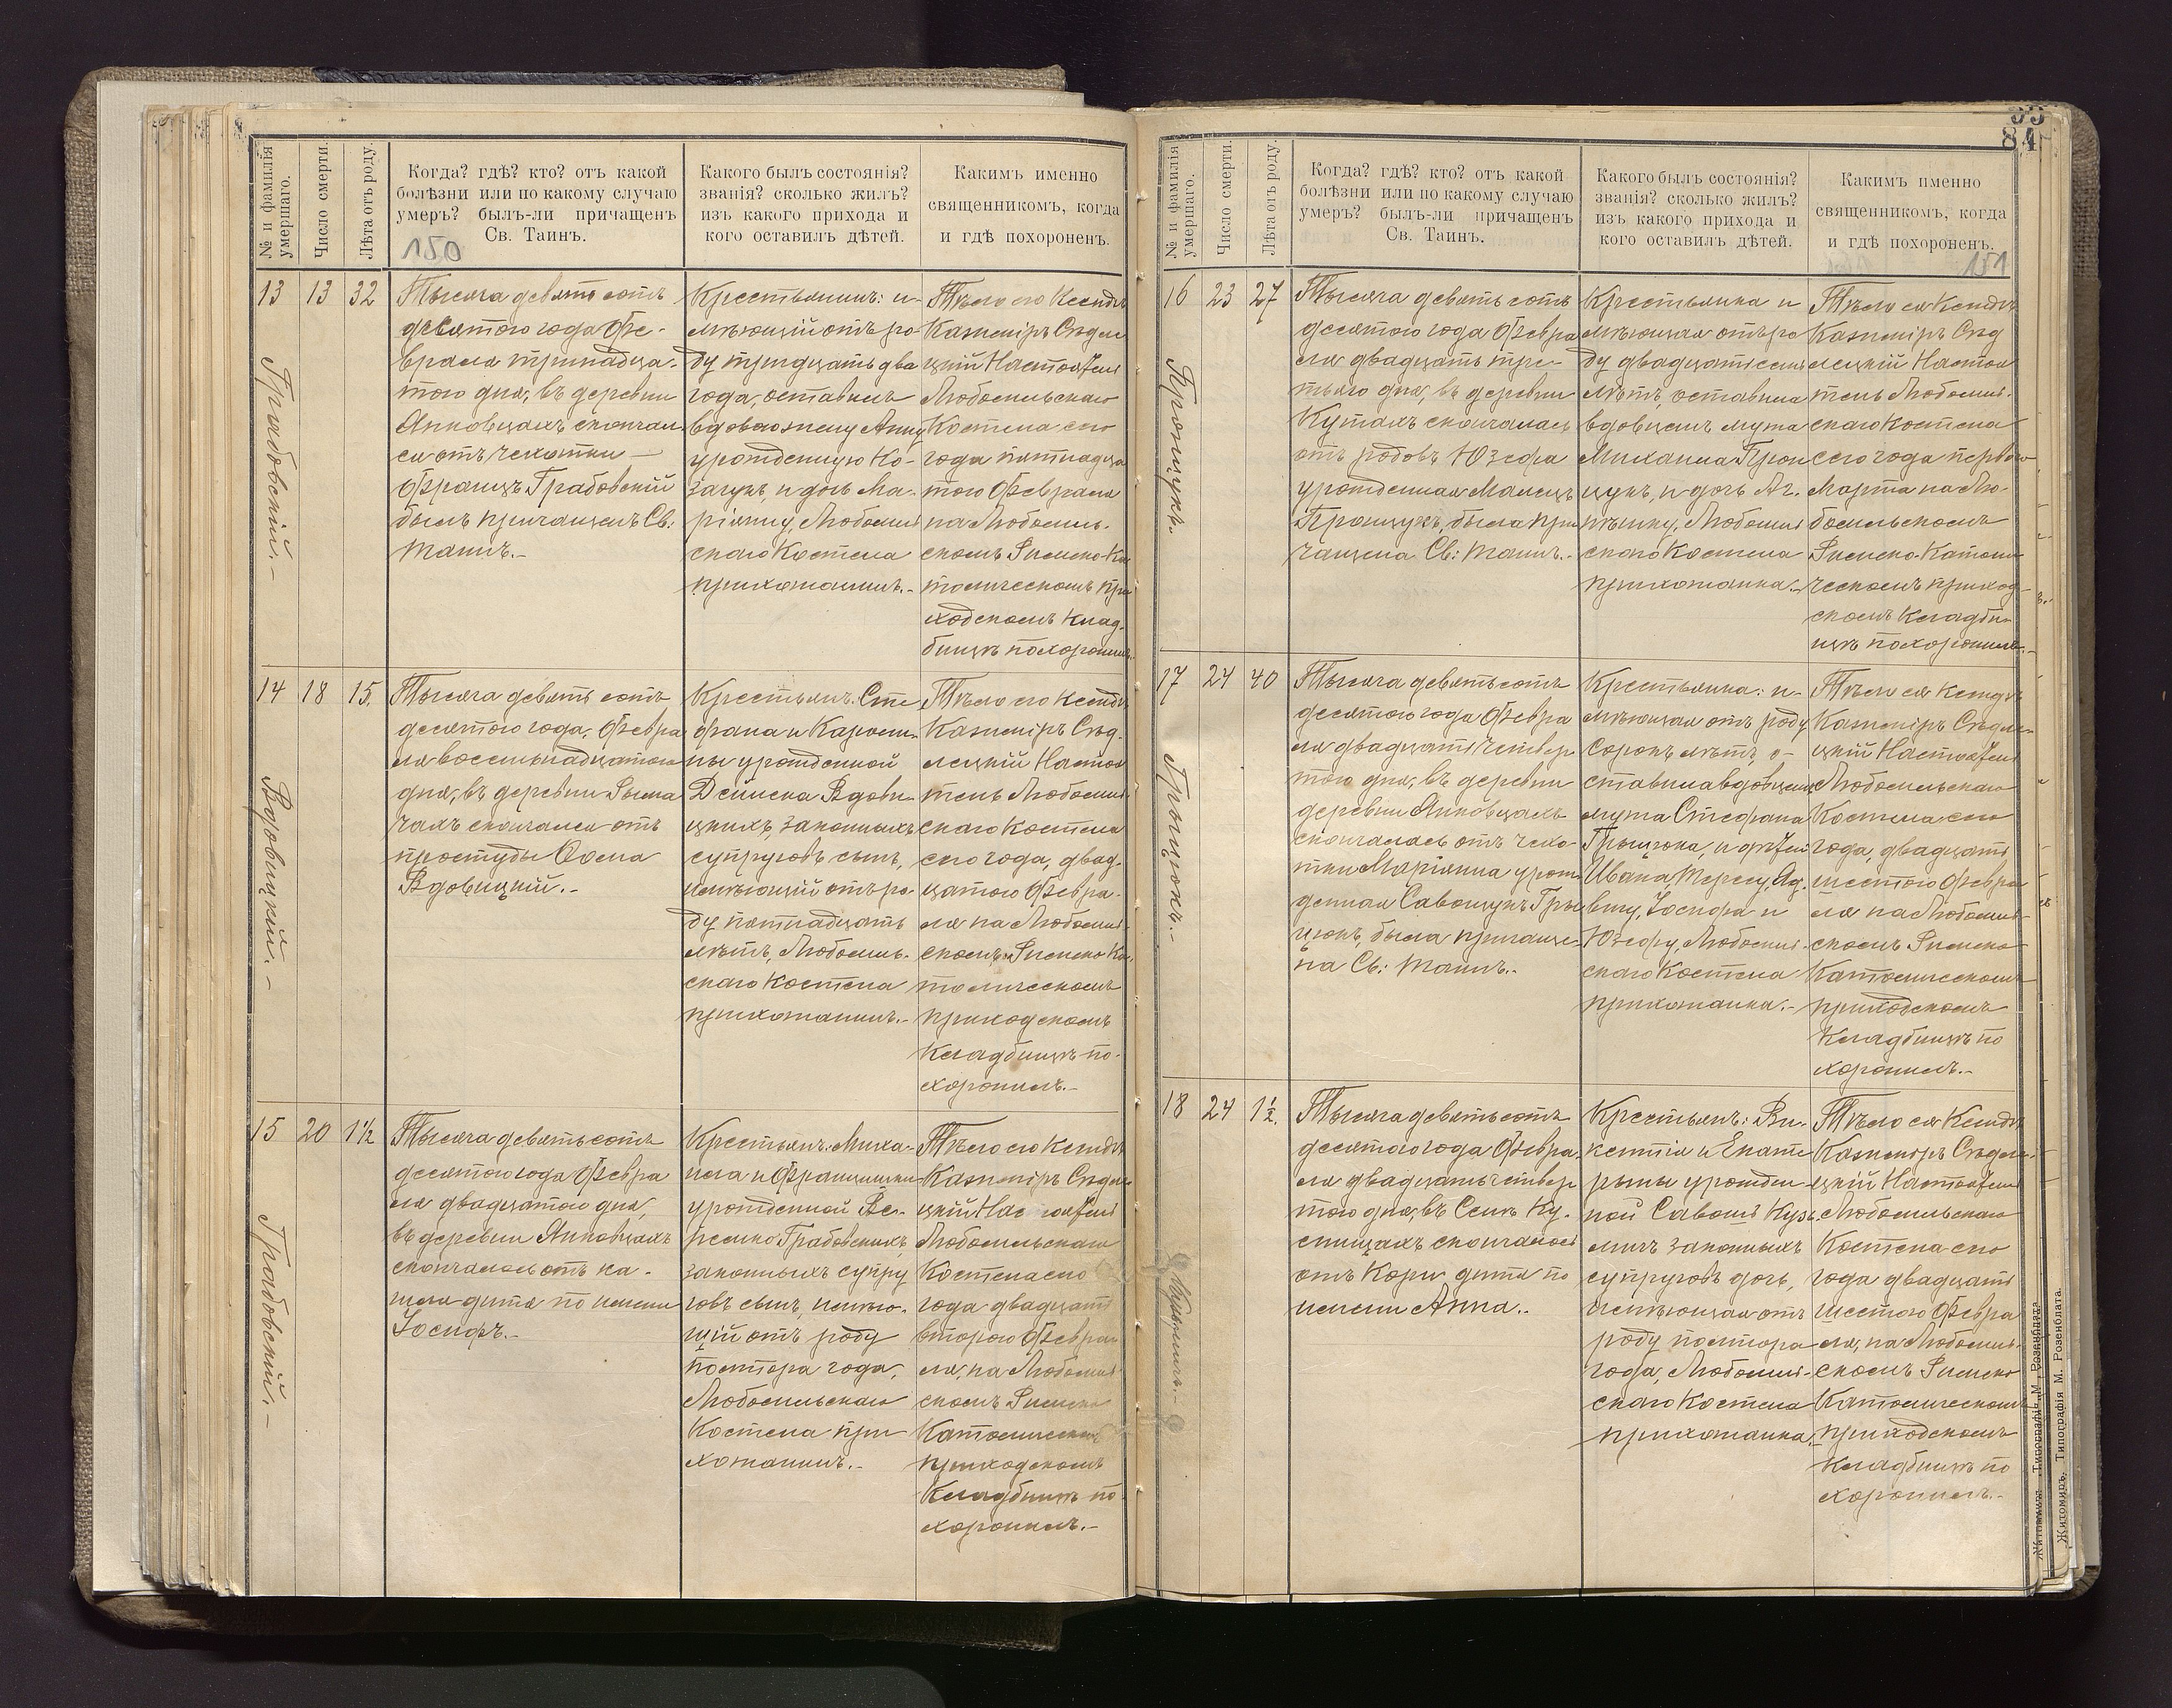 № и фамилія умершаго.
Число смерти.
Лѣта отъ роду.
Когда? гдѣ? кто? отъ какой
болѣзни или по какому случаю
умеръ? былъ-ли причащенъ
Св. Таинъ.
150
Какого былъ состоянія?
званія? сколько жилъ?
изъ какого прихода и
кого оставилъ дѣтей.
Какимъ именно
священникомъ, когда
и гдѣ похороненъ.
13
Грабовскій.-
13
32
Тысяча девятьсотъ
девятого года Фе-
враля тринадца-
того дня, въ деревни
Янковцахъ скончал-
ся отъ чехотки —
Францъ Грабовскій
былъ причащенъ Св:
Таинъ.-
Крестьянинъ: и-
мѣющій отъ ро-
ду тридцать два
года, оставилъ
вдовою жену Анну
урожденную Ко-
зачукъ, и дочь Ма-
ріянну, Любомль
скаго Костела
прихожанинъ.-
Тѣло его Ксендзъ
Казиміръ Сѣдле
цкій Настоятель
Любомльскаго
Костела сего
года пятнадца
того Февраля
на Любомль-
скомъ Римско-Ка
толическомъ при
ходскомъ клад-
бищѣ похоронилъ.-
14
Вдовицкій.-
18
15.
Тысяча девятьсотъ
десятого года, Февра
ля восемьнадцатого
дня, въ деревни Рыма
чахъ скончался отъ
простуды Осма
Вдовицкій.-
Крестьянъ: Сте
фана и Кароли-
ны урожденной
Дейнека Вдови-
цкихъ, законныхъ
супруговъ сынъ,
имѣющій отъ ро-
ду пятнадцать
лѣтъ, Любомль-
скаго Костела
прихожанинъ.-
Тѣло его Ксендзъ
Казиміръ Сѣд-
лецкій Настоя
тель Любомль-
скаго Костела
сего года, двад-
цатого Февра-
ля на Любомль-
скомъ Римско Ка-
толическомъ
приходскомъ
Кладбищѣ по-
хоронилъ.-
15
Грабовскій.-
20
1½
Тысяча девятьсотъ
десятого года Февра
ля двадцатого дня,
въ деревни Янковцахъ
скончалось отъ ка-
шля дитя по имени
Іосифъ.-
Крестьянъ: Миха-
ила и Францишки
урожденной Ве-
ремко Грабовскихъ,
законныхъ супру
говъ сынъ, имѣю-
щій отъ роду
полтора года,
Любомльскаго
Костела при
хожанинъ.-
Тѣло его Ксендзъ
Казиміръ Сѣдле
цкій Настоятель
Любомльскаго
Костела сего
года двадцать
второго Февра
ля, на Любомль
скомъ Римско
Католическомъ
приходскомъ
Кладбищѣ по-
хоронилъ.-
84
№ и фамилія умершаго.
Число смерти.
Лѣта отъ роду.
Когда? гдѣ? кто? отъ какой
болѣзни или по какому случаю
умеръ? былъ-ли причащенъ
Св. Таинъ.
Какого былъ состоянія?
званія? сколько жилъ?
изъ какого прихода и
кого оставилъ дѣтей.
Какимъ именно
священникомъ, когда
и гдѣ похороненъ.
151
16
Пронцукъ.
23
27
Тысяча девятьсотъ
десятого года Февра
ля двадцать тре-
тьяго дня, въ деревни
Кутахъ скончалась
отъ родовъ Юзефа
урожденная Малецъ
Пронцукъ, была при
чащена Св: Таинъ.-
Крестьянка и
мѣющая отъ ро
ду двадцать семь
лѣтъ, оставила
вдовцемъ мужа
Михаила Прон
цукъ, и дочь Аг-
нѣшку, Любомль
скаго Костела
прихожанка.-
Тѣло ея Ксендзъ
Казиміръ Сѣд
лецкій Настоя
тель Любомль-
скаго Костела
сего года перваго
Марта на Лю-
бомльскомъ
Римско-Католи
ческомъ приход-
скомъ Кладби-
щѣ похоронилъ.-
17
Грыцюкъ.-
24
40
Тысяча девятьсотъ
десятого года Февра
ля двадцать четвер
того дня, въ деревни
деревни Янковцахъ
скончалась отъ чехо-
тки Маріянна урож-
денная Савощукъ Гры
цюкъ, была причаще-
на Св: Таинъ.-
Крестьянка: и-
мѣющая отъ роду
Сорокъ лѣтъ, о-
ставила вдовцемъ
мужа Стефана
Грыцюка, и дѣтей
Ивана, Тересу, Яд-
вигу, Іосифа и
Юзефу, Любомль-
скаго Костела
прихожанка.-
Тѣло ея Ксендзъ
Казиміръ Сѣдле-
цкій Настоятель
Любомльскаго
Костела сего
года, двадцать
шестого Февра
ля на Любомль-
скомъ Римско
Католическомъ
приходскомъ
Кладбищѣ по
хоронилъ.-
18
24
1½.
Тысяча девятьсотъ
десятого года Февра-
ля двадцать четвер
того дня, въ Селѣ Ку-
снищахъ скончалось
отъ Кори дитя по
имени Анна.-
Крестьянъ: Ви-
кентія и Екате
рины урожден-
ной Савошъ Кузь-
мичъ законныхъ
супруговъ дочь,
имѣющая отъ
роду полтора
года, Любомль-
скаго Костела
прихожанка.-
Тѣло ея Ксендзъ
Казиміръ Сѣдле-
цкій Настоятель
Любомльскаго
Костела сего
года двадцать
шестого Февра
ля, на Любомль-
скомъ Римско
Католическомъ
приходскомъ
Кладбищѣ по
хоронилъ.-
Житомиръ. Типографія М. Розенблата.
Житомиръ. Типографія М. Розенблата.